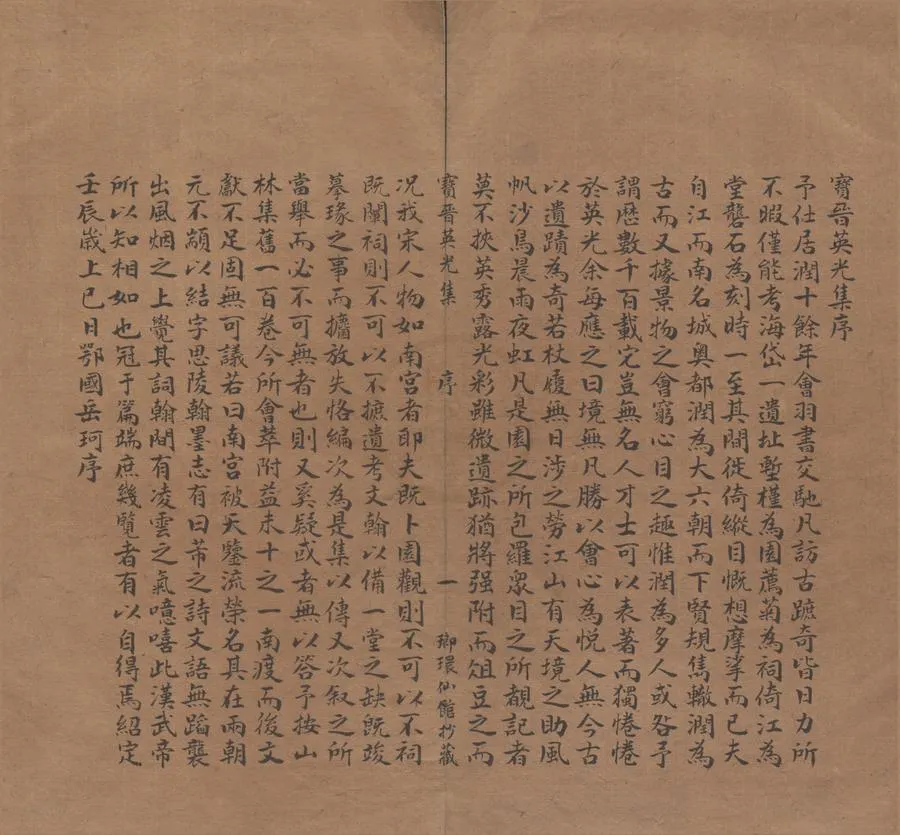 寶晉英光集序
予仕居潤十餘年會羽書交馳凡訪古蹠奇皆日力所
不暇僅能考海岱一遺址塹槿為園薦菊為祠倚江為
堂礱石為刻時一至其間徙倚縱目慨想摩挲而已夫
自江而南名城奧都潤為大六朝而下賢規雋轍潤為
古而又據景物之會窮心目之趣惟潤為多人或咎予
謂歷數千百載完豈無名人才士可以表著而獨惓惓
於英光余每應之曰境無凡勝以會心為悦人無今古
以遺蹟為奇若杖履無日涉之勞江山有天境之助風
帆沙鳥晨雨夜虹凡是園之所包羅衆目之所覩記者
莫不挾英秀露光彩雖微遺跡猶將强附而俎豆之而
寶晉英光集 序 一 瑯環仙館抄藏
況我宋人物如南宫者耶夫既卜園觀則不可以不祠
既闡祠則不可以不摭遺考文翰以備一堂之缺既竣
摹瑑之事而攟放失恪編次為是集以傳又次叙之所
當舉而必不可無者也則又奚疑或者無以答予按山
林集舊一百卷今所會萃附益未十之一南渡而後文
獻不足固無可議若曰南宫被天鑒流榮名其在兩朝
元不顓以結字思陵翰墨志有曰芾之詩文語無蹈襲
出風烟之上覺其詞翰間有凌雲之氣噫嘻此漢武帝
所以知相如也冠于篇端庶幾覽者有以自得焉紹定
壬辰歲上巳日鄂國岳珂序